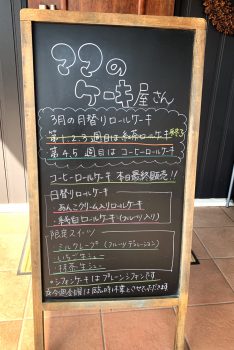 ママの
ケーキ屋さん
3月の月替りロールケーキ
第1.2.3週目は紅茶ロールケーキ 終了
第4.5週目はコーヒーロールケーキ
コーヒーロールケーキ 本日最終販売!!
日替りロールケーキ
・あんこクリーム入りロールケーキ
・純白ロールケーキ(フルーツ入り)
限定スイーツ
・ミルクレープ(フルーツデコレーション)
・いちご生シュー
・抹茶生シュー
・シフォンケーキはプレーンシフォンです